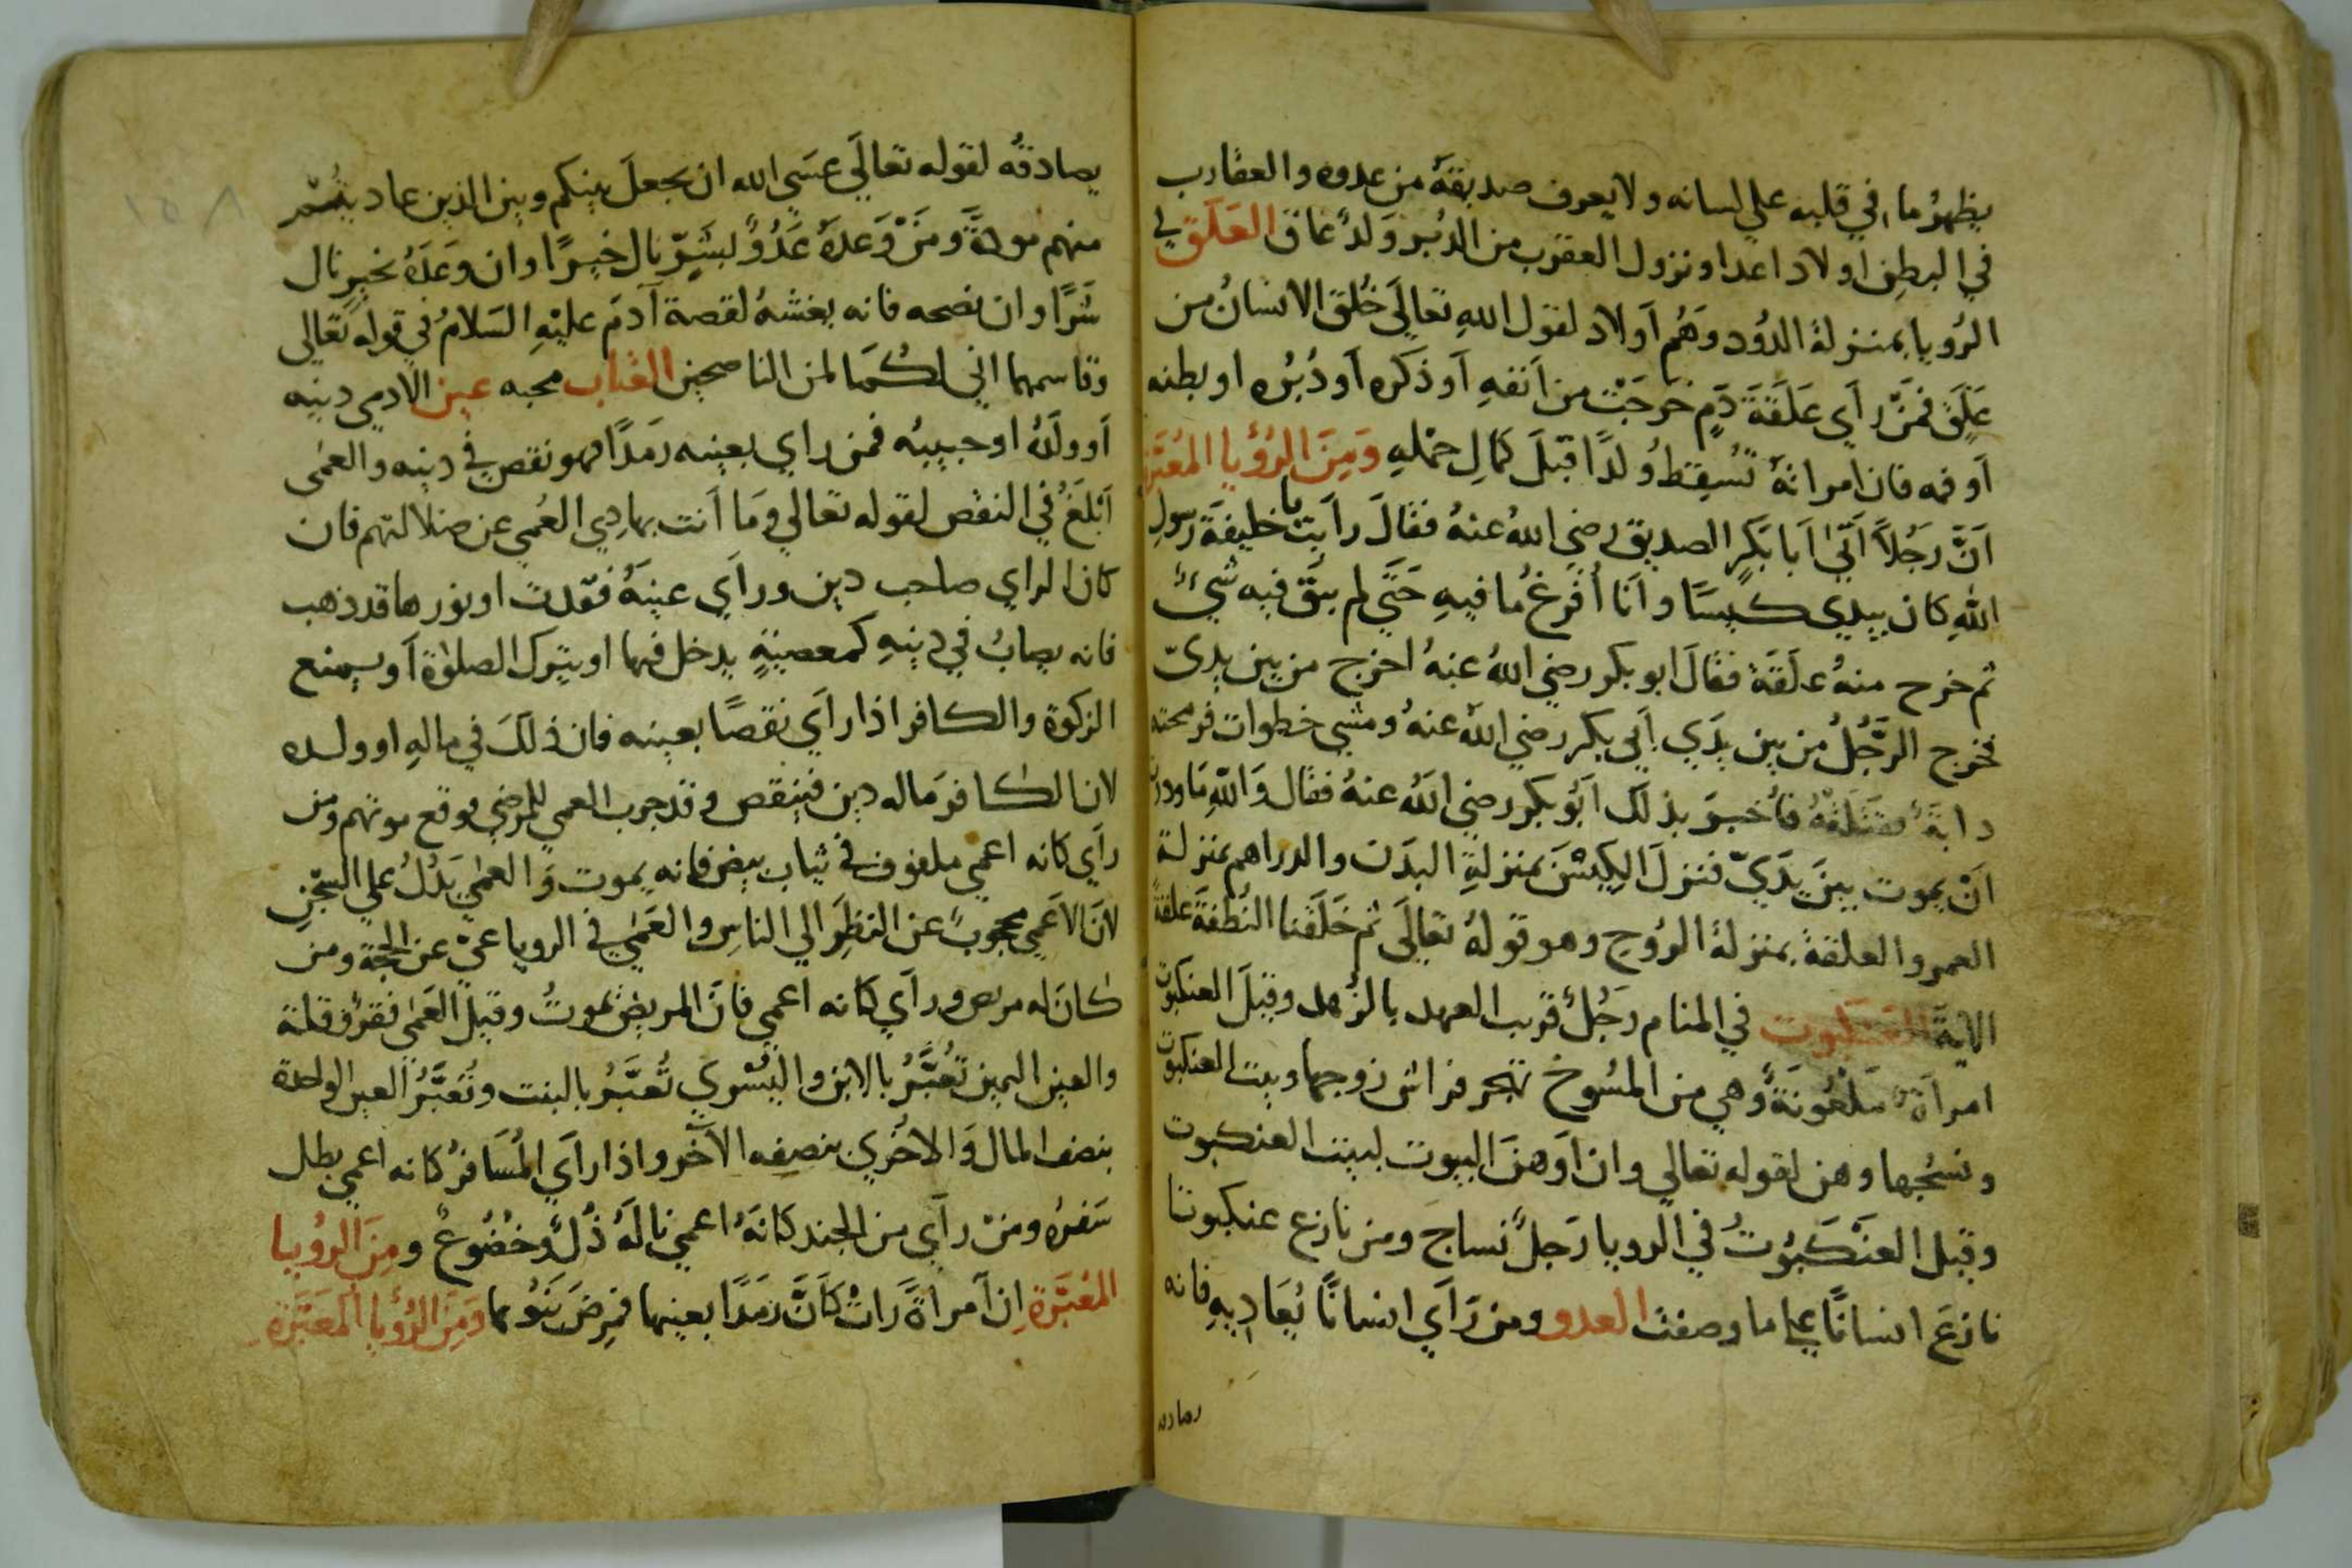 يظهرُ ما في قلبه علي لسانه ولا يعرف صديقهُ من عدوه والعقارب
في البطن اولاد اعدا ونزول العقرب من الدُبر وَلدٌ عاق العَلَق في
الرُويا بمنزلة الدُود وَهُم اَولاد لقول اللهِ تعالَي خُلق الانسانُ من
عَلَق فمَن رأي عَلَقَةَ دَمٍ خَرجَتْ من اَنفهِ اَو ذَكره اَو دُبُره او بطنه
اَو فمه فان امراتهُ تُسقِطُ وَلدًا قبلَ كمالِ حَملهِ وَمِنَ الرُؤيا المُعَبَّرة
اَنَّ رَجُلاً اَتَي اَبا بَكرٍ الصديق رضي اللهُ عنهُ فقَالَ راَيت يا خليفَةَ رسولِ
اللهِ كان بيدي كيسًا واَنا اُفرغُ ما فيهِ حَتَّي لم يبقَ فيه شيءٌ
ثم خرج منهُ علَقَة فقالَ ابو بكر رضي اللهُ عنهُ اخرج من بين يديّ
فخرج الرَّجُلُ من بين يدَي اَبي بكر رضي اللهُ عنهُ ومشي خطوات فرمحته
دابةٌ فقتَلَتْهُ فاُخبِرَ بذلكَ اَبُو بكر رضي اللهُ عنهُ فقال وَاللهِ مَا وددت
اَنْ يموت بينَ يدَيّ فنزلَ الكِيسَ بمنزلةِ البدَن والدراهم بمنزلة
العمر والعلقةُ بمنزلةُ الرُوح وهو قولهُ تعالَي ثم خَلَقنا النُطفَةَ علقةً
الايةَ العنكبوت في المنام رَجُلٌ قريب العهد بالزُهد وقيلَ العنكبوت
امراَةٌ مَلعُونَةٌ وهي من المسُوخ تهجر فراش زوجها وبيت العنكبوت
ونسجُها وهن لقوله تعالي وان اَوهنَ البيوت لبيت العنكبوت
وقيل العنْكَبُوتُ في الرويا رَجلٌ نساج ومن نازع عنكبوتا
نازعَ انسانًا علي ما وصفت العدو ومن رَاَي انسانًا يُعَاديهِ فانه
يصادقُه
يصادقُه لقوله تعالَي عسَي الله ان يجعلَ بينكم وبين الذين عاديتُم
منهم مودةً وَمَنْ وَعدهُ عَدُوٌ لبشَرٍّ نال خيرًا وان وعَدَهُ بخيرٍ نال
شرًا وان نصحه فانه يغشهُ لقصة آدمَ عليْهِ السَلامُ في قولهُ تعالي
وقاسمهما اني لكُمَا لمن الناصحين العناب محبه عين الادمي دينه
اَو ولَدهُ او حبيبُه فمن راي بعينه رمَدًا فهو نقص في دينه والعمي
اَبْلَغُ في النقص لقوله تعالي وَمَا اَنت بهادِي العُمي عن ضلالتهم فان
كان الراي صاحب دين وراَي عينهُ فقدت او نورها قد ذهب
فانه يصابُ في دينهِ كمعصيَةٍ يدخل فيها او يترك الصلوٰة اَو يمنع
الزكوة والكافر اذا راَي نقصًا بعينه فان ذلكَ في مالهِ او ولده
لان الكافر مَا له دين فينقص وقد جرب العمي للمرضي فوقع موتهم ومن
راَي كانه اعمي ملفوف في ثياب بيض فانه يموت وَالعمي يَدُلُ علي السجْنِ
لانَ الاَعمي محجوبٌ عن النظرِ الي الناسِ والعَمي في الرويا عميّ عن الحجة ومن
كان له مريض وراَي كانه اعمي فانَ المريضَ يموتُ وقيلَ العَمي فقرٌ وقلة
والعين اليمين تُعَبَّرُ بالابن واليُسْري تُعبَّرُ بالبنت وتُعَبَّرُ العين الواحدة
بنصف المال وَالاخرَي بنصفه الآخر واذا راَي المُسَافرُ كانه اعمي بطل
سَفرهُ ومنْ راَي من الجند كانَهُ اعمي نالَهُ ذُلٌ وخُضُوعٌ ومِنَ الرؤيا
المُعبَّرة اِن اَمراةً راتْ كَاَنَّ رَمَدًا بعينها فمرِضَ بَنُوها وَمِنَ الرُؤيا المعَبَّرة